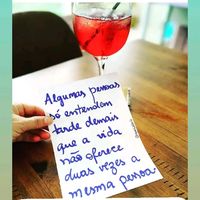 Algumas pessoas
só entendem
tarde demais
que a vida
não oferece
duas vezes a
mesma pessoa